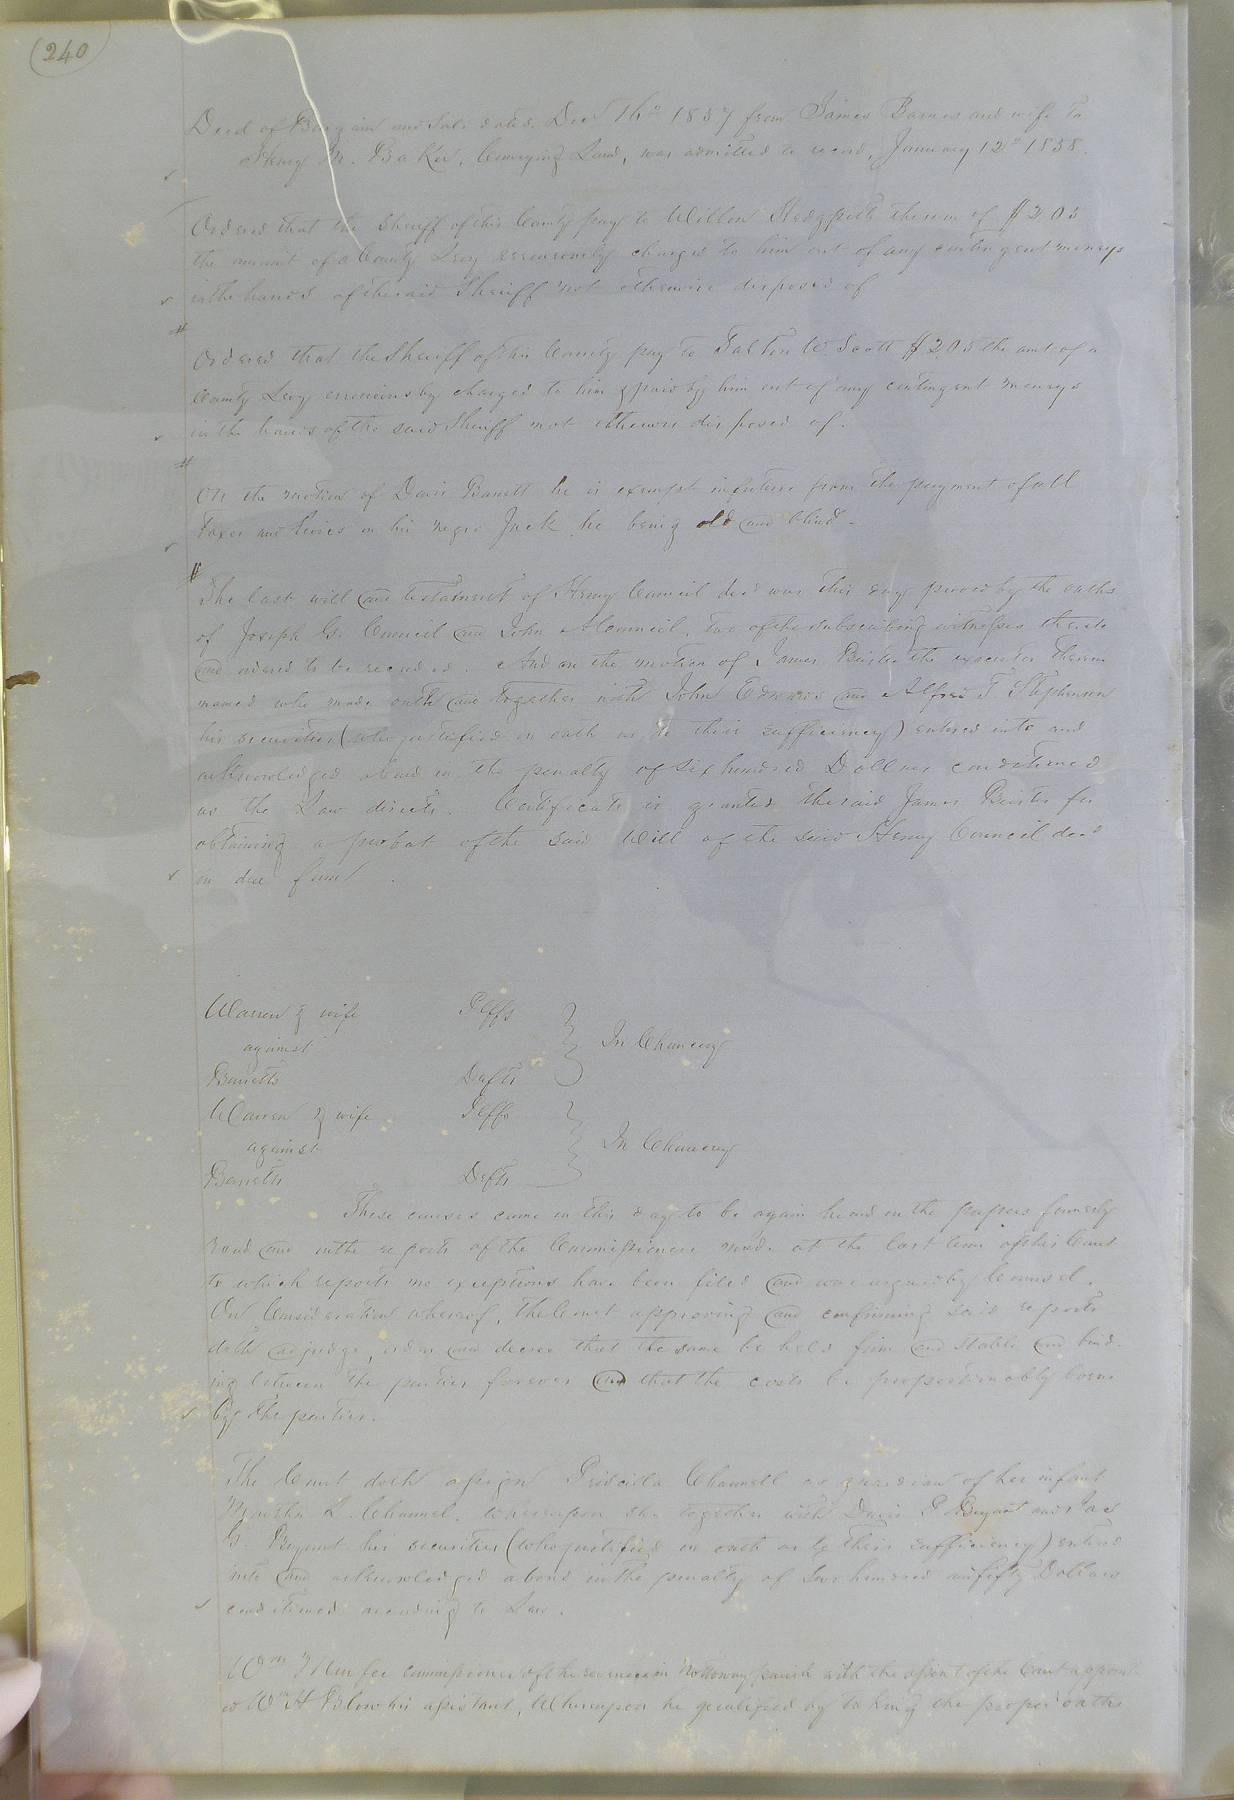 240
Deed of Bargain and Sale dated Dec 16th 1857 from James Barnes and wife to
Henry M. Baker, Conveying Land, was admitted to record, January 12th 1858.
Ordered that the Sheriff of this County pay to the sum of $2.05
the amount of a County Levy erroneously charged to him out of any contingent moneys
in the hands of the said Sheriff not otherwise disposed of
#
Ordered that the Sheriff of this County pay to W Scott $2.05 the amt of a
County Levy erroneously charged to him & paid by him out of any contingent moneys
in the hands of the said Sheriff not otherwise disposed of.
#
On the motion of Davis Barrett he is exempt in future from the payment of all
Taxes and Levies on his negro Jack he being old and blind -
#
The last will and testament of Henry Council decd was this day proved by the oaths
of Joseph G. Council and John A Council, two of the subscribing witnesses thereto
and ordered to be recorded. And on the motion of James the executor therein
named who made oath and together with John Edwards and Alfred T. Stephenson
his securities (who justified on oath as to their sufficiency) entered into and
acknowledged a bond in the penalty of Six hundred Dollars conditioned
as the Law directs. Certificate is granted the said James for
obtaining a probat of the said Will of the said Henry Council decd
in due form.
Warren & wife Plffs
against } In Chancery
Barretts Defts
Warren & wife Plffs
against } In Chancery
Barretts Defts
These causes came on this day to be again heard on the papers formerly
read and on the reports of the Commissioners made at the last term of this Court
to which reports no exceptions have been filed and was argued by Counsel.
On Consideration whereof, the Court approving and confirming said reports
doth adjudge, order and decree that the same be held firm and stable and bind-
ing between the parties forever and that the costs be proportionably borne
by the parties.
The Court doth assign Priscilla Channell as guardian of her infant
Martha L. Channel. whereupon she together with Davis P Bryant and Jas
G. Bryant his securities (who justified on oath as to their sufficiency) entered
into and acknowledged a bond in the penalty of two hundred and fifty Dollars
conditioned according to Law.
Wm commissioner of the revenue in Nottoway parish with the assent of the Court appoint-
ed Wm H Blow his assistant, Whereupon he qualified by taking the proper oaths